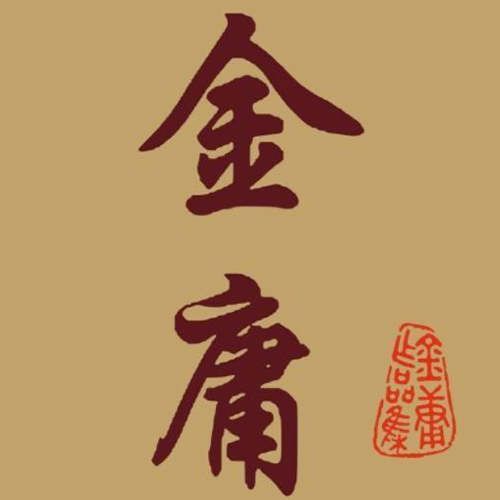 金庸
金庸作品集